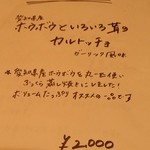 愛知県産
ホウボウといろいろ茸の
カルトッチョ
ガーリック風味
※愛知県産ホウボウを丸一匹使い
ふっくら蒸し焼きにしました!
ボリュームたっぷりオススメの一品です
¥2,000